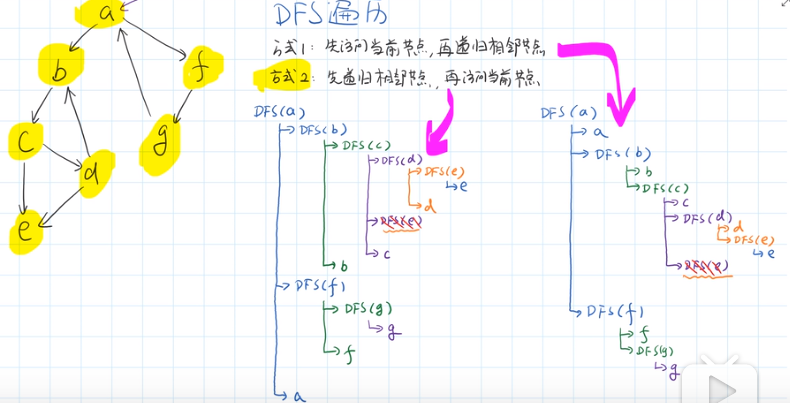 DFS遍历
方式1：先访问当前节点，再递归相邻节点
方式2：先递归相邻节点，再访问当前节点
a
b
f
c
d
g
e
DFS(a)
DFS(b)
DFS(c)
DFS(d)
DFS(e)
e
d
DFS(e)
c
b
DFS(f)
DFS(g)
g
f
a
DFS(a)
a
DFS(b)
b
DFS(c)
c
DFS(d)
d
DFS(e)
e
DFS(e)
DFS(f)
f
DFS(g)
g